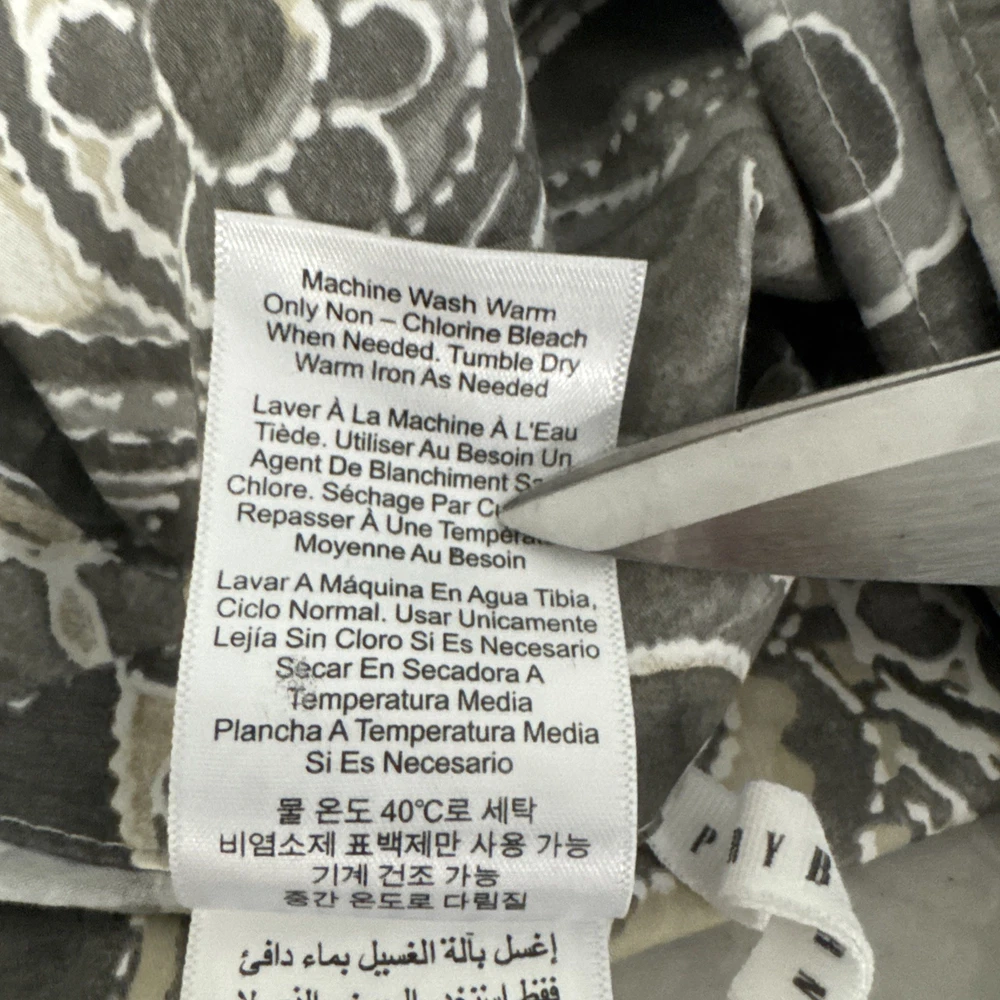 Machine Wash Warm
Only Non – Chlorine Bleach
When Needed. Tumble Dry
Warm Iron As Needed
Laver À La Machine À L'Eau
Tiède. Utiliser Au Besoin Un
Agent De Blanchiment
Chlore. Séchage Par
Repasser À Une
Moyenne Au Besoin
Lavar A Máquina En Agua Tibia,
Ciclo Normal. Usar Unicamente
Lejía Sin Cloro Si Es Necesario
Secar En Secadora A
Temperatura Media
Plancha A Temperatura Media
Si Es Necesario
물 온도 40℃로 세탁
비염소제 표백제만 사용 가능
기계 건조 가능
중간 온도로 다림질
إغسل بآلة الغسيل بماء دافئ